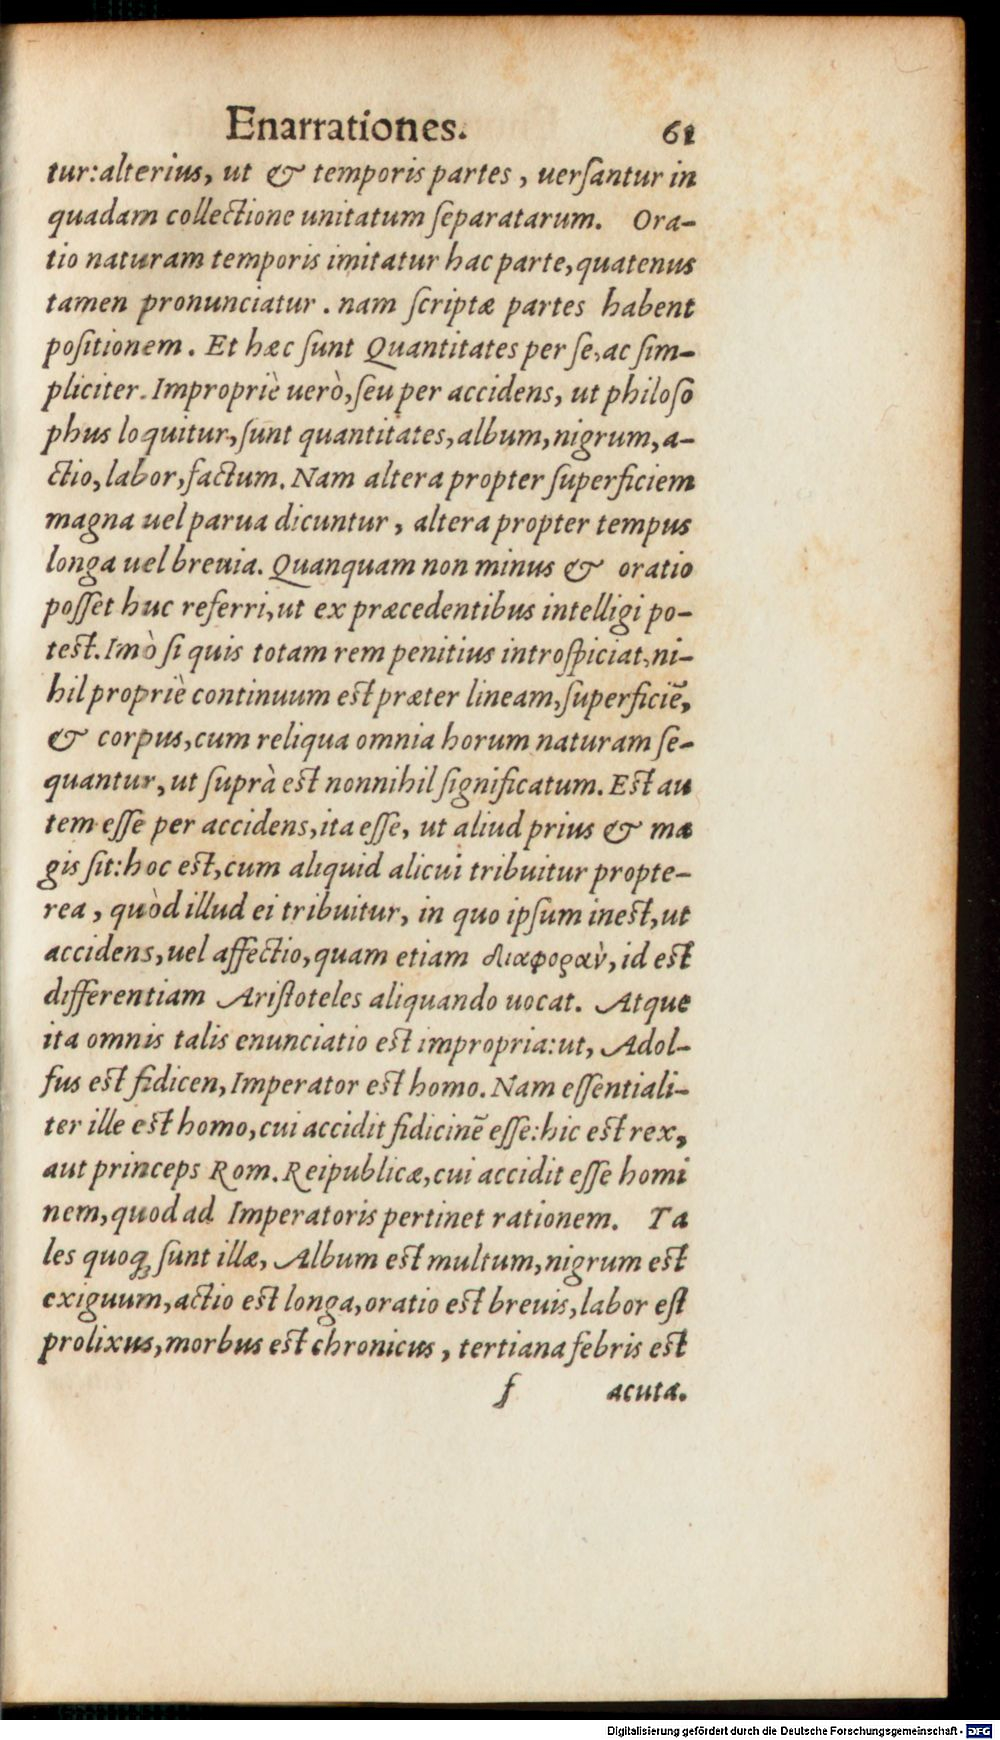 Enarrationes. 61
tur:alterius, ut & temporis partes, uerſantur in
quadam collectione unitatum ſeparatarum. Ora-
tio naturam temporis imitatur hac parte, quatenus
tamen pronunciatur. nam ſcriptæ partes habent
poſitionem. Et hæc ſunt Quantitates per ſe, ac ſim-
pliciter. Impropriè uerò, ſeu per accidens, ut philoſo
phus loquitur, ſunt quantitates, album, nigrum, a-
ctio, labor, factum. Nam altera propter ſuperficiem
magna uel parua dicuntur, altera propter tempus
longa uel breuia. Quanquam non minus & oratio
poſſet huc referri, ut ex præcedentibus intelligi po-
teſt. Imò ſi quis totam rem penitius introſpiciat, ni-
hil propriè continuum eſt præter lineam, ſuperficiẽ,
& corpus, cum reliqua omnia horum naturam ſe-
quantur, ut ſuprà eſt nonnihil ſignificatum. Eſt au
tem eſſe per accidens, ita eſſe, ut aliud prius & ma
gis ſit: hoc eſt, cum aliquid alicui tribuitur propte-
rea, quòd illud ei tribuitur, in quo ipſum ineſt, ut
accidens, uel affectio, quam etiam διαφορὰν, id eſt
differentiam Ariſtoteles aliquando uocat. Atque
ita omnis talis enunciatio eſt impropria: ut, Adol-
fus eſt fidicen, Imperator eſt homo. Nam eſſentiali-
ter ille eſt homo, cui accidit fidicinẽ eſſe: hic eſt rex,
aut princeps Rom. Reipublicæ, cui accidit eſſe homi
nem, quod ad Imperatoris pertinet rationem. Ta
les quoq; ſunt illæ, Album eſt multum, nigrum eſt
exiguum, actio eſt longa, oratio eſt breuis, labor eſt
prolixus, morbus eſt chronicus, tertiana febris eſt
f acuta.
Digitalisierung gefördert durch die Deutsche Forschungsgemeinschaft - DFG